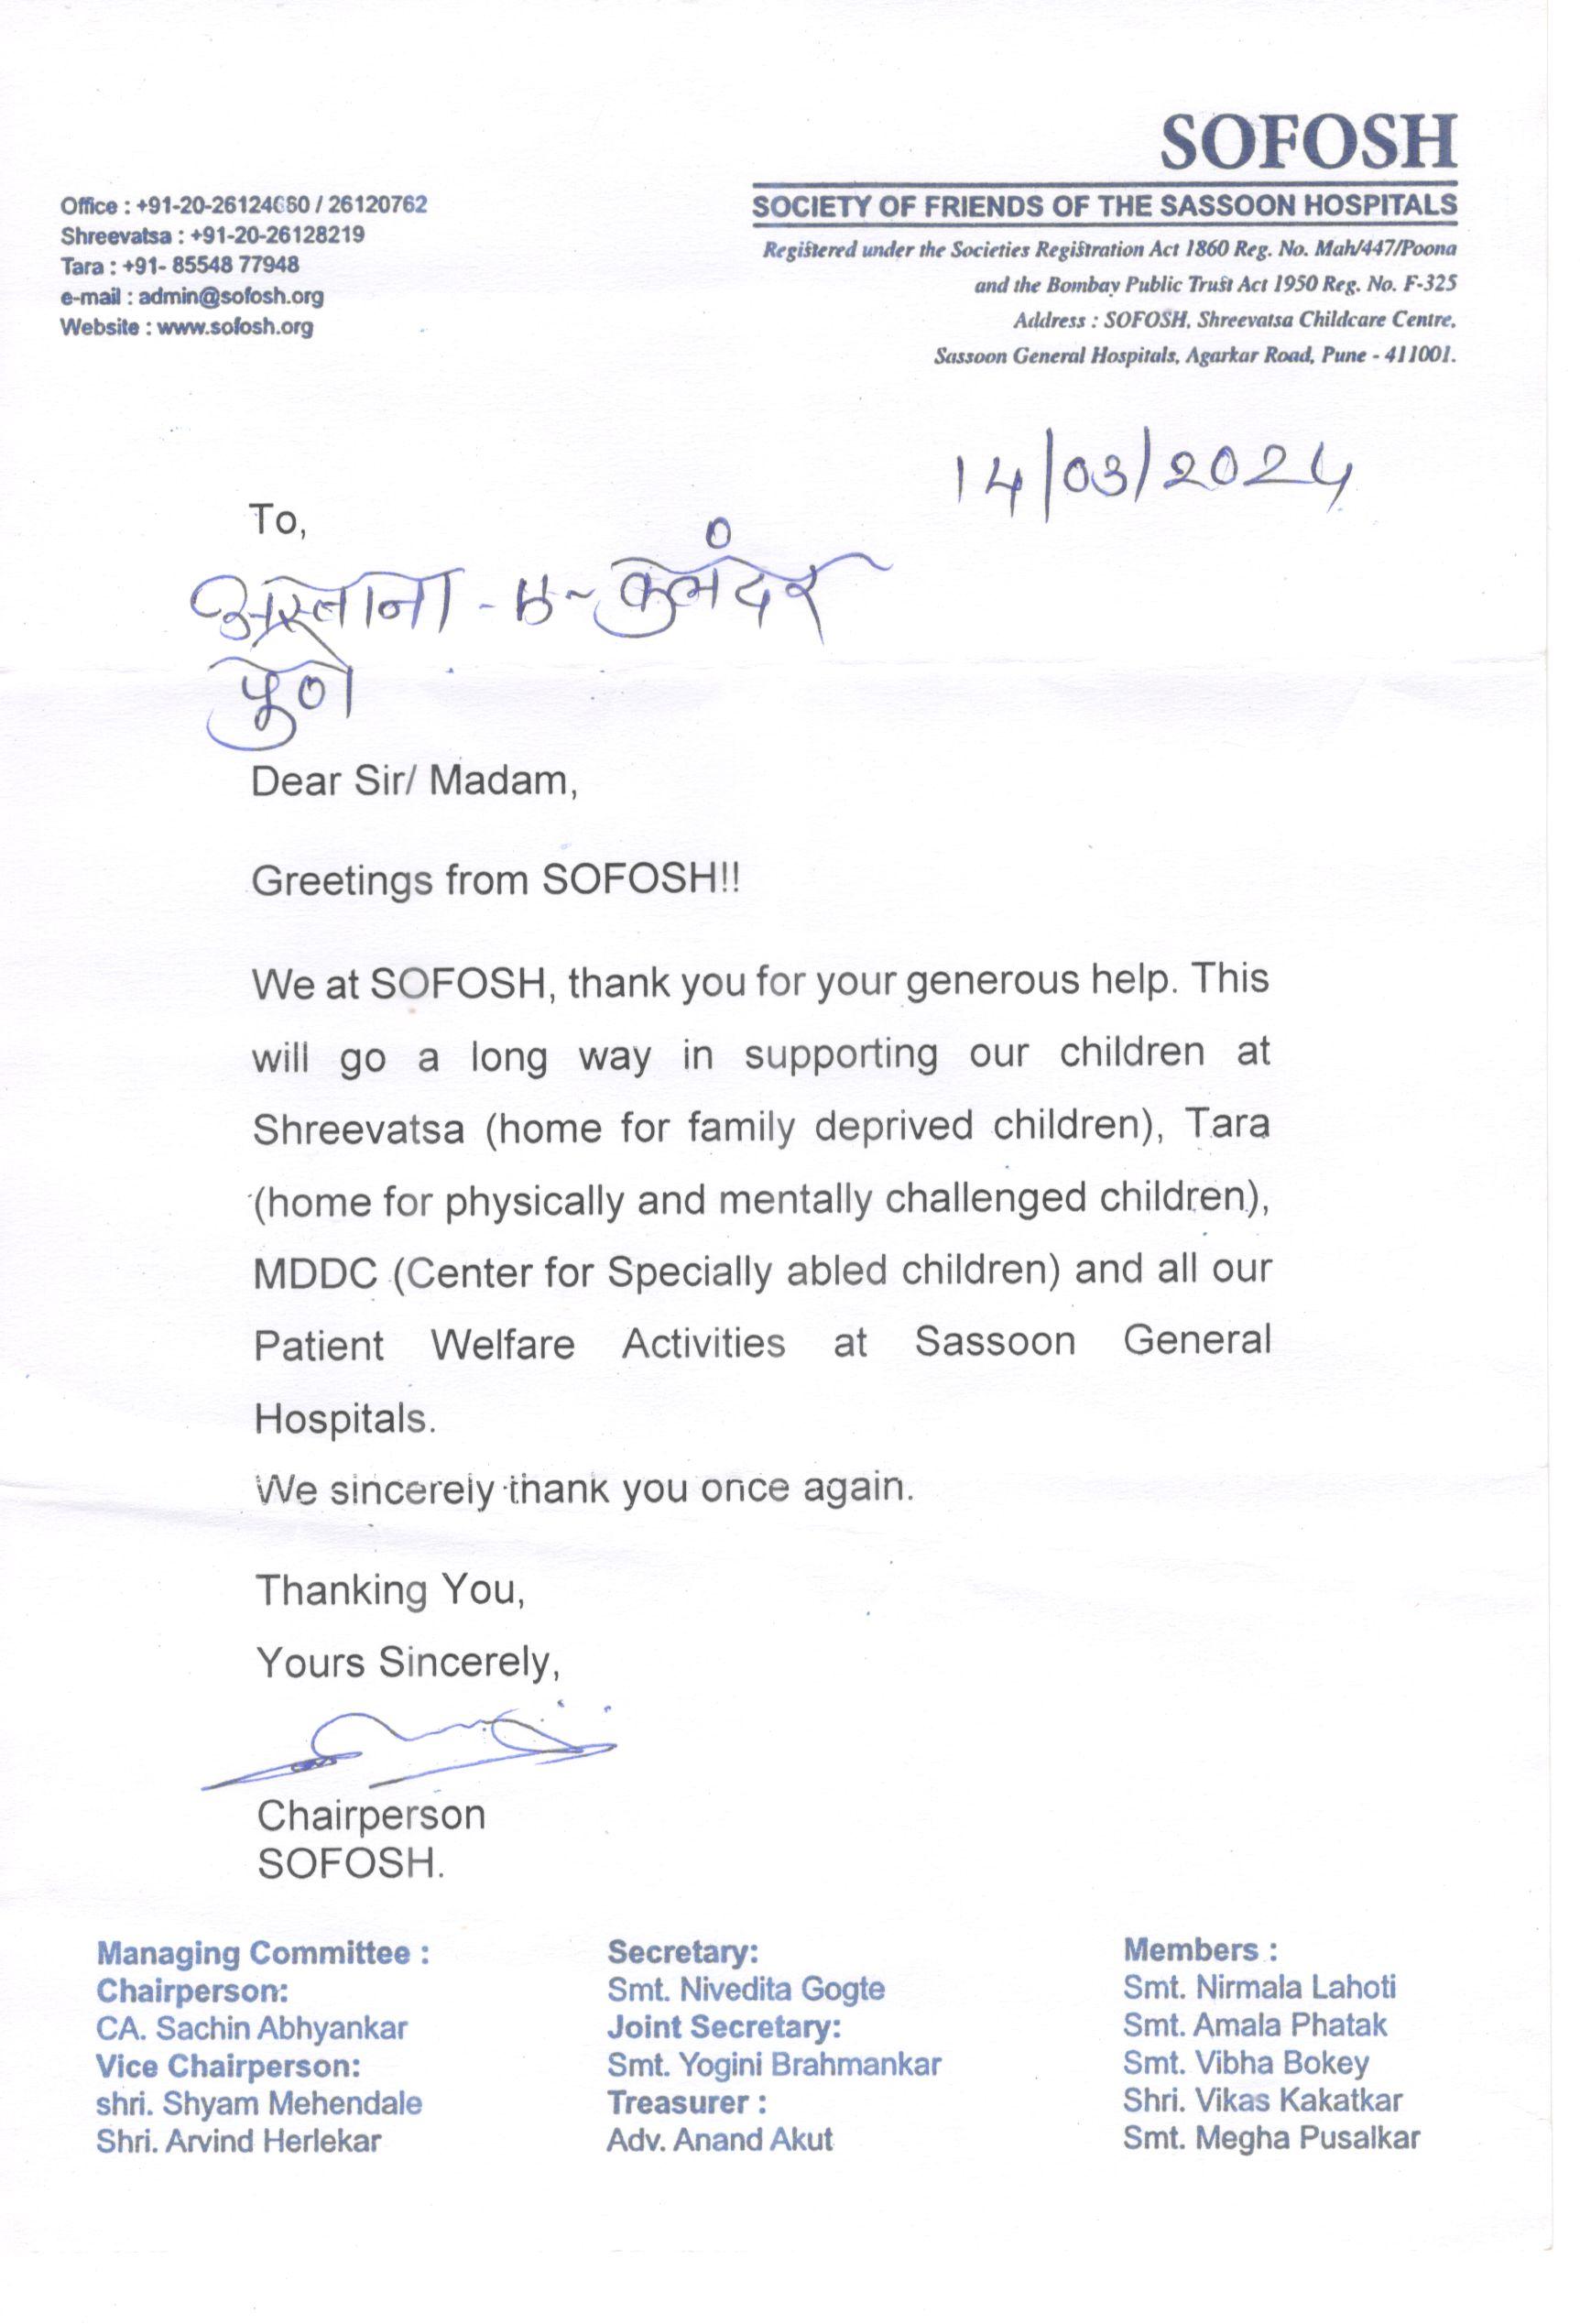 SOFOSH
SOCIETY OF FRIENDS OF THE SASSOON HOSPITALS
Registered under the Societies Registration Act 1860 Reg. No. Mah/447/Poona
and the Bombay Public Trust Act 1950 Reg. No. F-325
Address : SOFOSH, Shreevatsa Childcare Centre,
Sassoon General Hospitals, Agarkar Road, Pune - 411001.
Office : +91-20-26124660 / 26120762
Shreevatsa : +91-20-26128219
Tara : +91- 85548 77948
e-mail : admin@sofosh.org
Website : www.sofosh.org
14/03/2024
To,
अस्ताना - ए - कलंदर
पुणे
Dear Sir/ Madam,
Greetings from SOFOSH!!
We at SOFOSH, thank you for your generous help. This
will go a long way in supporting our children at
Shreevatsa (home for family deprived children), Tara
(home for physically and mentally challenged children),
MDDC (Center for Specially abled children) and all our
Patient Welfare Activities at Sassoon General
Hospitals.
We sincerely thank you once again.
Thanking You,
Yours Sincerely,
Chairperson
SOFOSH.
Managing Committee :
Chairperson:
CA. Sachin Abhyankar
Vice Chairperson:
shri. Shyam Mehendale
Shri. Arvind Herlekar
Secretary:
Smt. Nivedita Gogte
Joint Secretary:
Smt. Yogini Brahmankar
Treasurer :
Adv. Anand Akut
Members :
Smt. Nirmala Lahoti
Smt. Amala Phatak
Smt. Vibha Bokey
Shri. Vikas Kakatkar
Smt. Megha Pusalkar